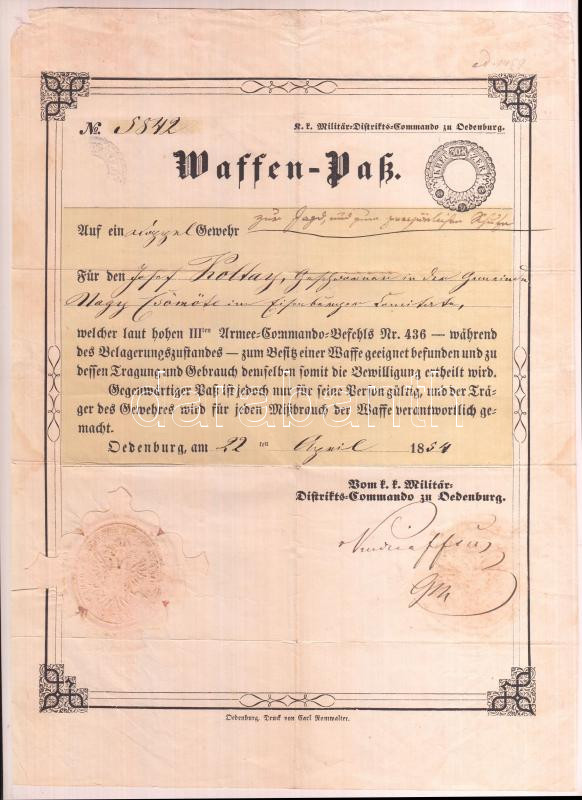 ad. 1459
№. 5842
K. k. Militär-Distrikts-Commando zu Oedenburg.
Waffen-Paß.
KREUZER
Auf ein Gewehr zur Jagd, und zum persönlichen Schutze
Für den Josef Koltay, Geschworenen in der Gemeinde
Nagy Csömöte im Eisenburger Comitate,
welcher laut hohen IIIten Armee-Commando-Befehls Nr. 436 — während
des Belagerungszustandes — zum Besitz einer Waffe geeignet befunden und zu
dessen Tragung und Gebrauch demselben somit die Bewilligung ertheilt wird.
Gegenwärtiger Paß ist jedoch nur für seine Person gültig, und der Trä-
ger des Gewehres wird für jeden Mißbrauch der Waffe verantwortlich ge-
macht.
Oedenburg, am 22 ten April 1854
Vom k. k. Militär-
Distrikts-Commando zu Oedenburg.
GM
darabanth
Oedenburg. Druck von Carl Romwalter.